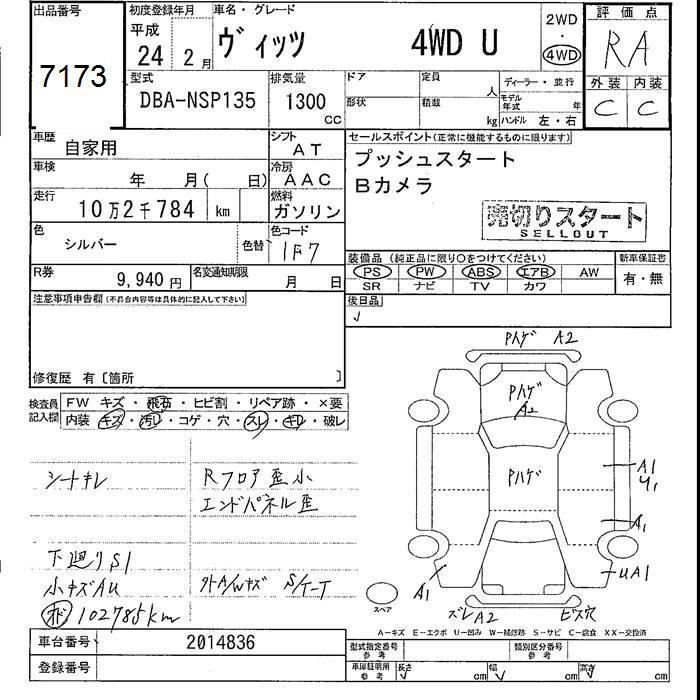 出品番号
7173
初度登録年月
平成
24 2月
車名・グレード
ヴィッツ 4WD U
2WD
・
4WD
評価点
RA
外装 内装
C C
型式
DBA-NSP135
排気量
1300
CC
ドア
形状
定員
人
積載
kg
ディーラー・並行
モデル年式 年
ハンドル 左・右
車歴 自家用
シフト AT
車検 年 月( 日)
冷房 AAC
走行 10万2千784 km
燃料 ガソリン
色 シルバー
色替
色コード 1F7
R券 9,940円
名変通知期限 月 日
セールスポイント(正常に機能するものに限ります)
プッシュスタート
Bカメラ
売切りスタート
SELLOUT
装備品(純正品に限り○をつけてください)
PS PW ABS エアB AW
SR ナビ TV カワ
新車保証書
有・無
後日品
注意事項申告欄(不具合内容等は具体的に記入して下さい)
修復歴 有〔箇所 〕
検査員記入欄
FW キズ・飛石・ヒビ割・リペア跡・×要
内装 キズ・汚レ・コゲ・穴・スレ・キレ・破レ
シートキレ
Rフロア歪小
エンドパネル歪
下廻りS1
小キズAU
外A/Wキズ S/ケース
102785km
Pハゲ A2
Pハゲ
A2
Pハゲ
A1
A1
UA1
A1
ズレA2
ビス穴
スペア
A-キズ E-エクボ U-凹み W-補修跡 S-サビ C-腐食 XX-交換済
車台番号 2014836
登録番号
型式指定番号 参考
類別区分番号 参考
車庫証明用 参考
長さ cm
幅 cm
高さ cm